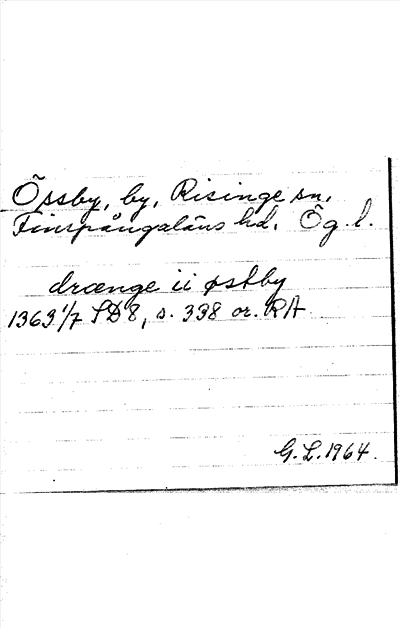 Össby, by, Risinge sn,
Finspångaläns hd. Ög. l.
drænge ii østby
1363 1/7 SD 8, s. 338 or. RA
G. L. 1964.